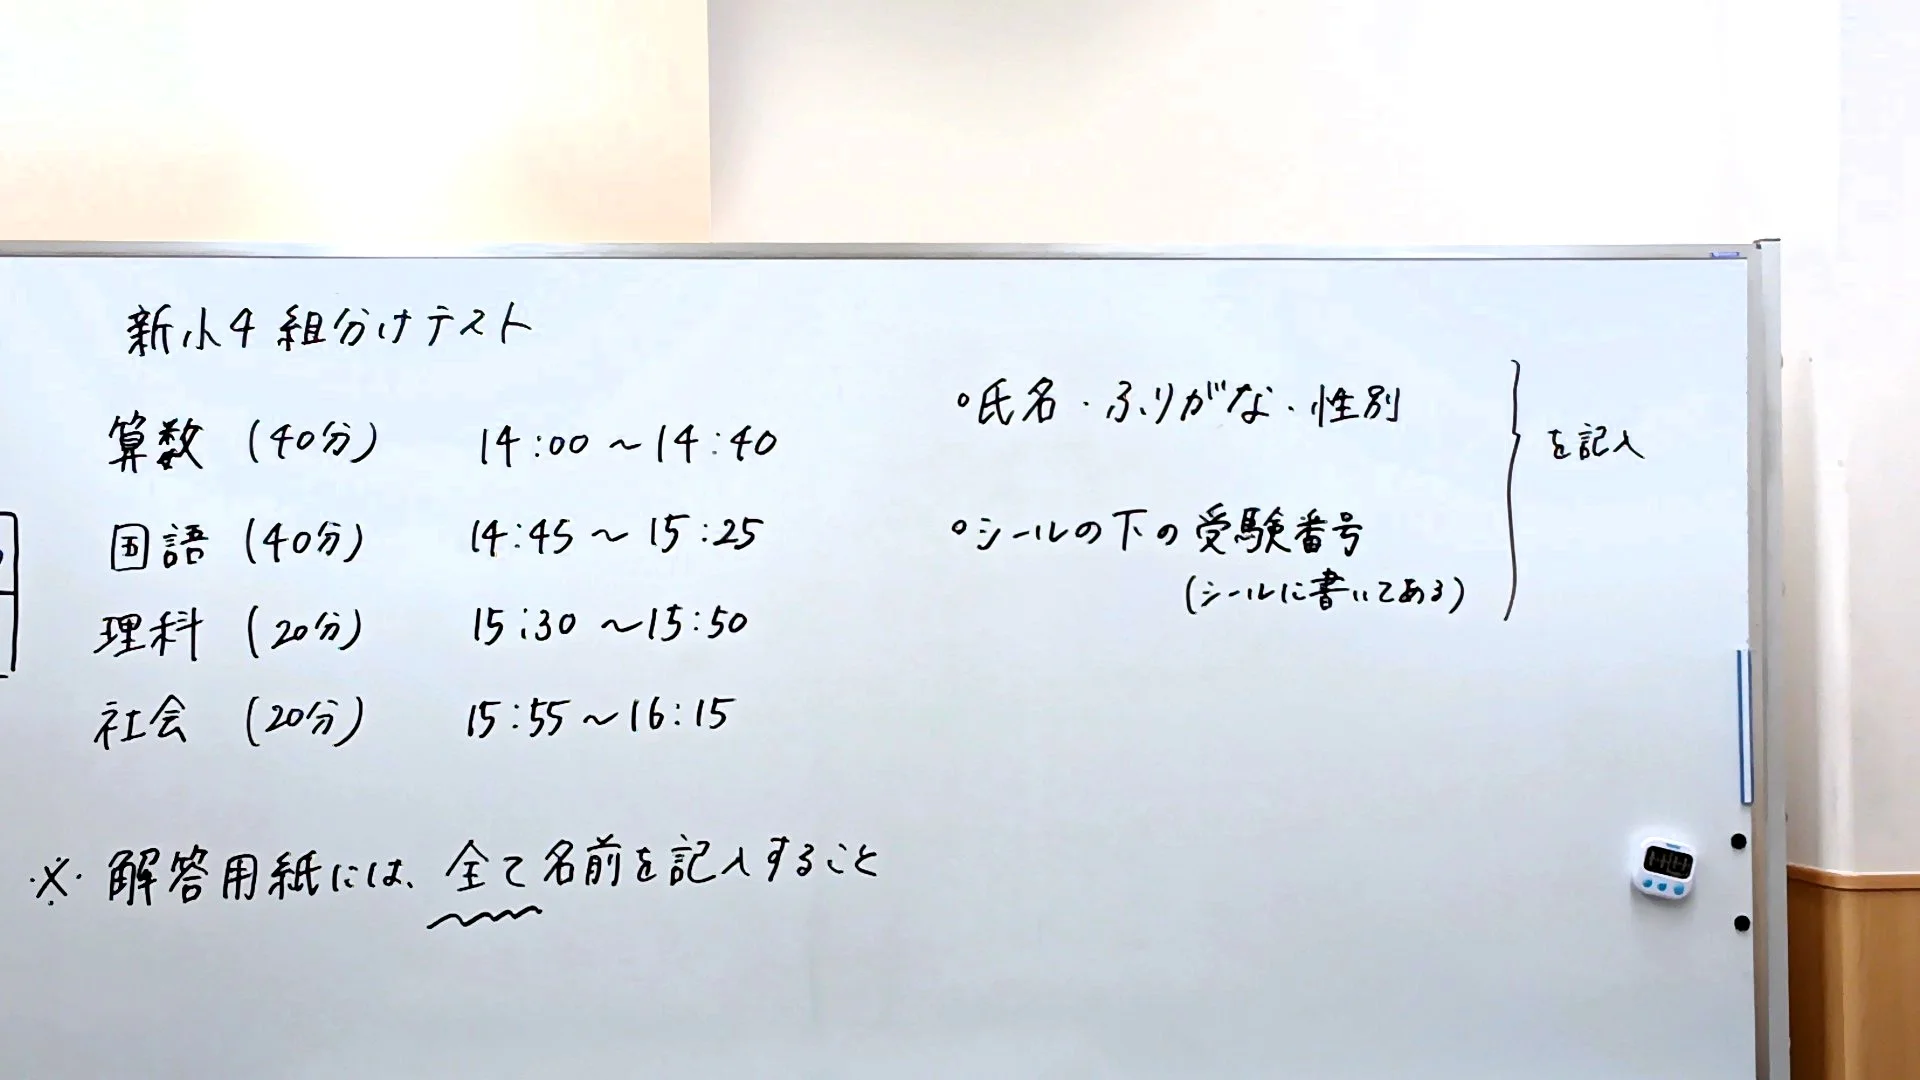 新小4 組分けテスト
算数 (40分) 14:00～14:40
国語 (40分) 14:45～15:25
理科 (20分) 15:30～15:50
社会 (20分) 15:55～16:15
※ 解答用紙には、全て名前を記入すること
○氏名・ふりがな・性別
○シールの下の受験番号
(シールに書いてある)
を記入